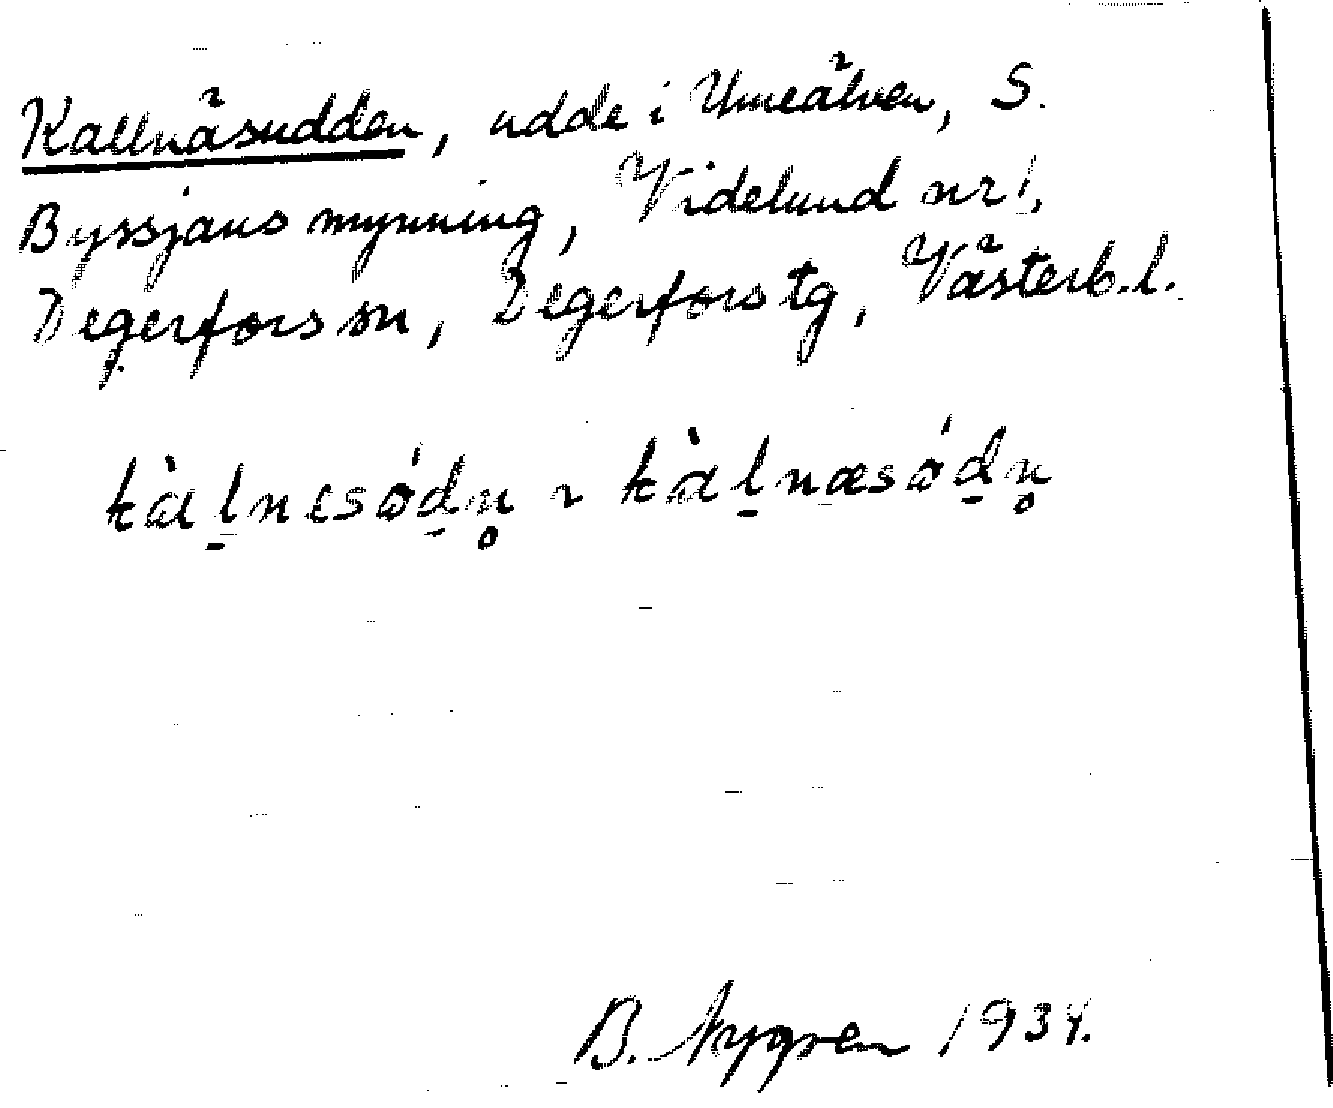 Kallnäsudden, udde i Umeälven, S.
Byssjans mynning, Videlund nr 1,
Degerfors sn, Degerfors tg, Västerb. l.
kàl̠nɛsǿd̠n̥ ~ kàl̠næsǿd̠n̥
B. Nygren 1934.